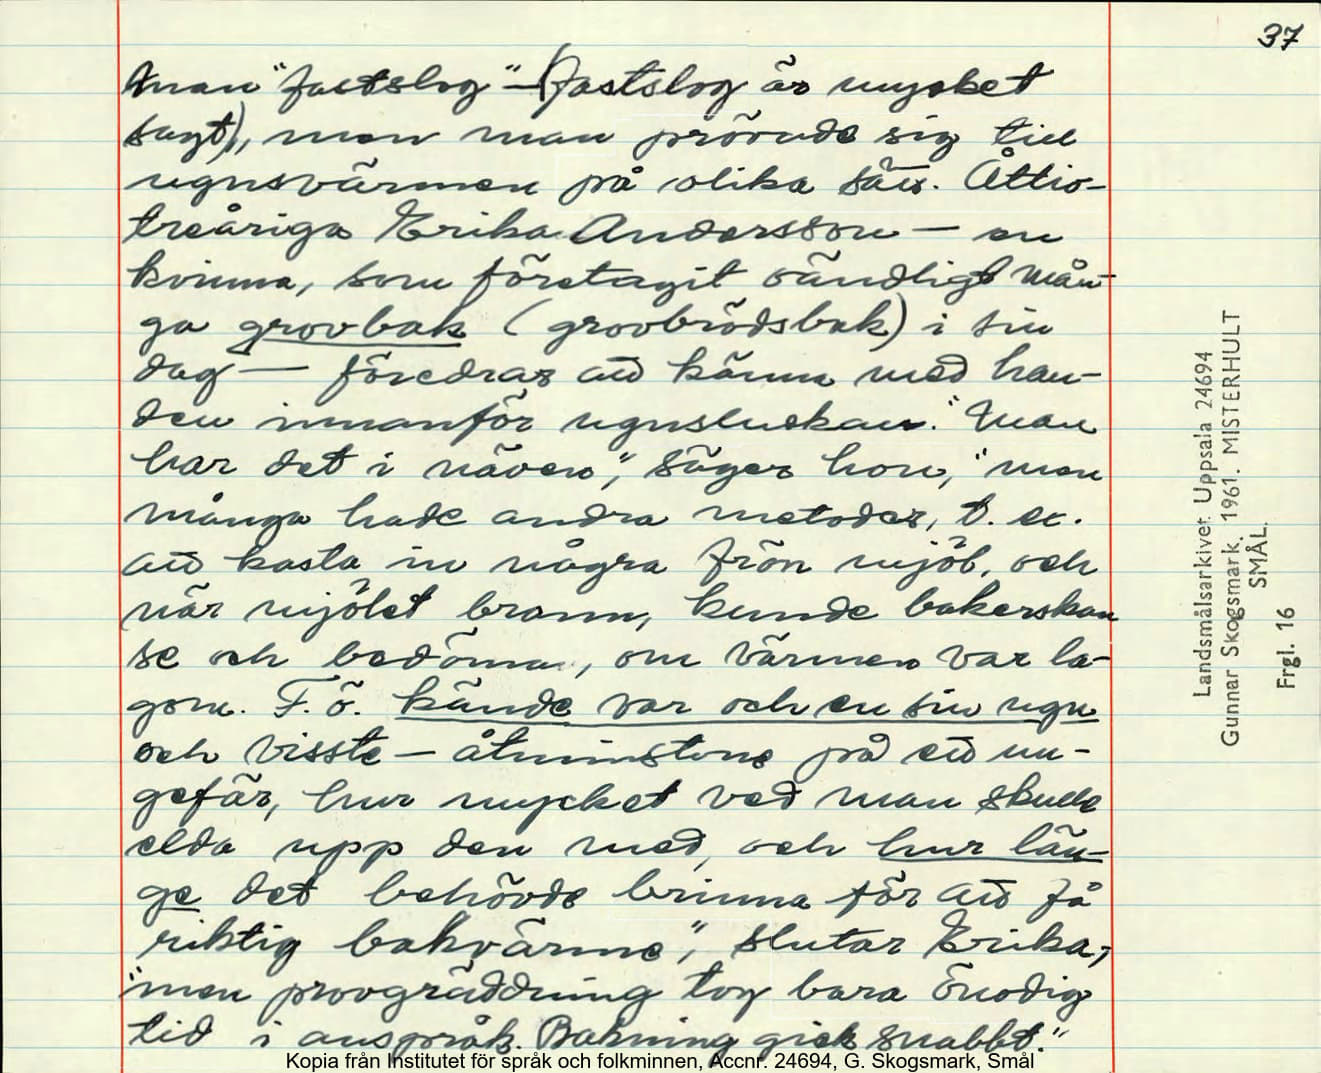 37
man "fastslog" – (fastslog är mycket
sagt), men man prövade sig till
ugnsvärmen på olika sätt. Åttio-
treåriga Erika Andersson – en
kvinna, som företagit oändligt mån-
ga grovbak (grovbrödsbak) i sin
dag – föredrar att känna med han-
den innanför ugnsluckan. "Man
har det i näven", säger hon, "men
många hade andra metoder, t. ex.
att kasta in några frön mjöl, och
när mjölet brann, kunde bakerskan
se och bedöma, om värmen var la-
gom. F. ö. kände var och en sin ugn
och visste – åtminstone på ett un-
gefär, hur mycket ved man skulle
elda upp den med, och hur län-
ge det behövde brinna för att få
riktig bakvärme", slutar Erika,
"men provgräddning tog bara onödig
tid i anspråk. Bakning gick snabbt."
Landsmålsarkivet Uppsala 24694
Gunnar Skogsmark. 1961. MISTERHULT
SMÅL.
Frgl. 16
Kopia från Institutet för språk och folkminnen, Accnr. 24694, G. Skogsmark, Smål